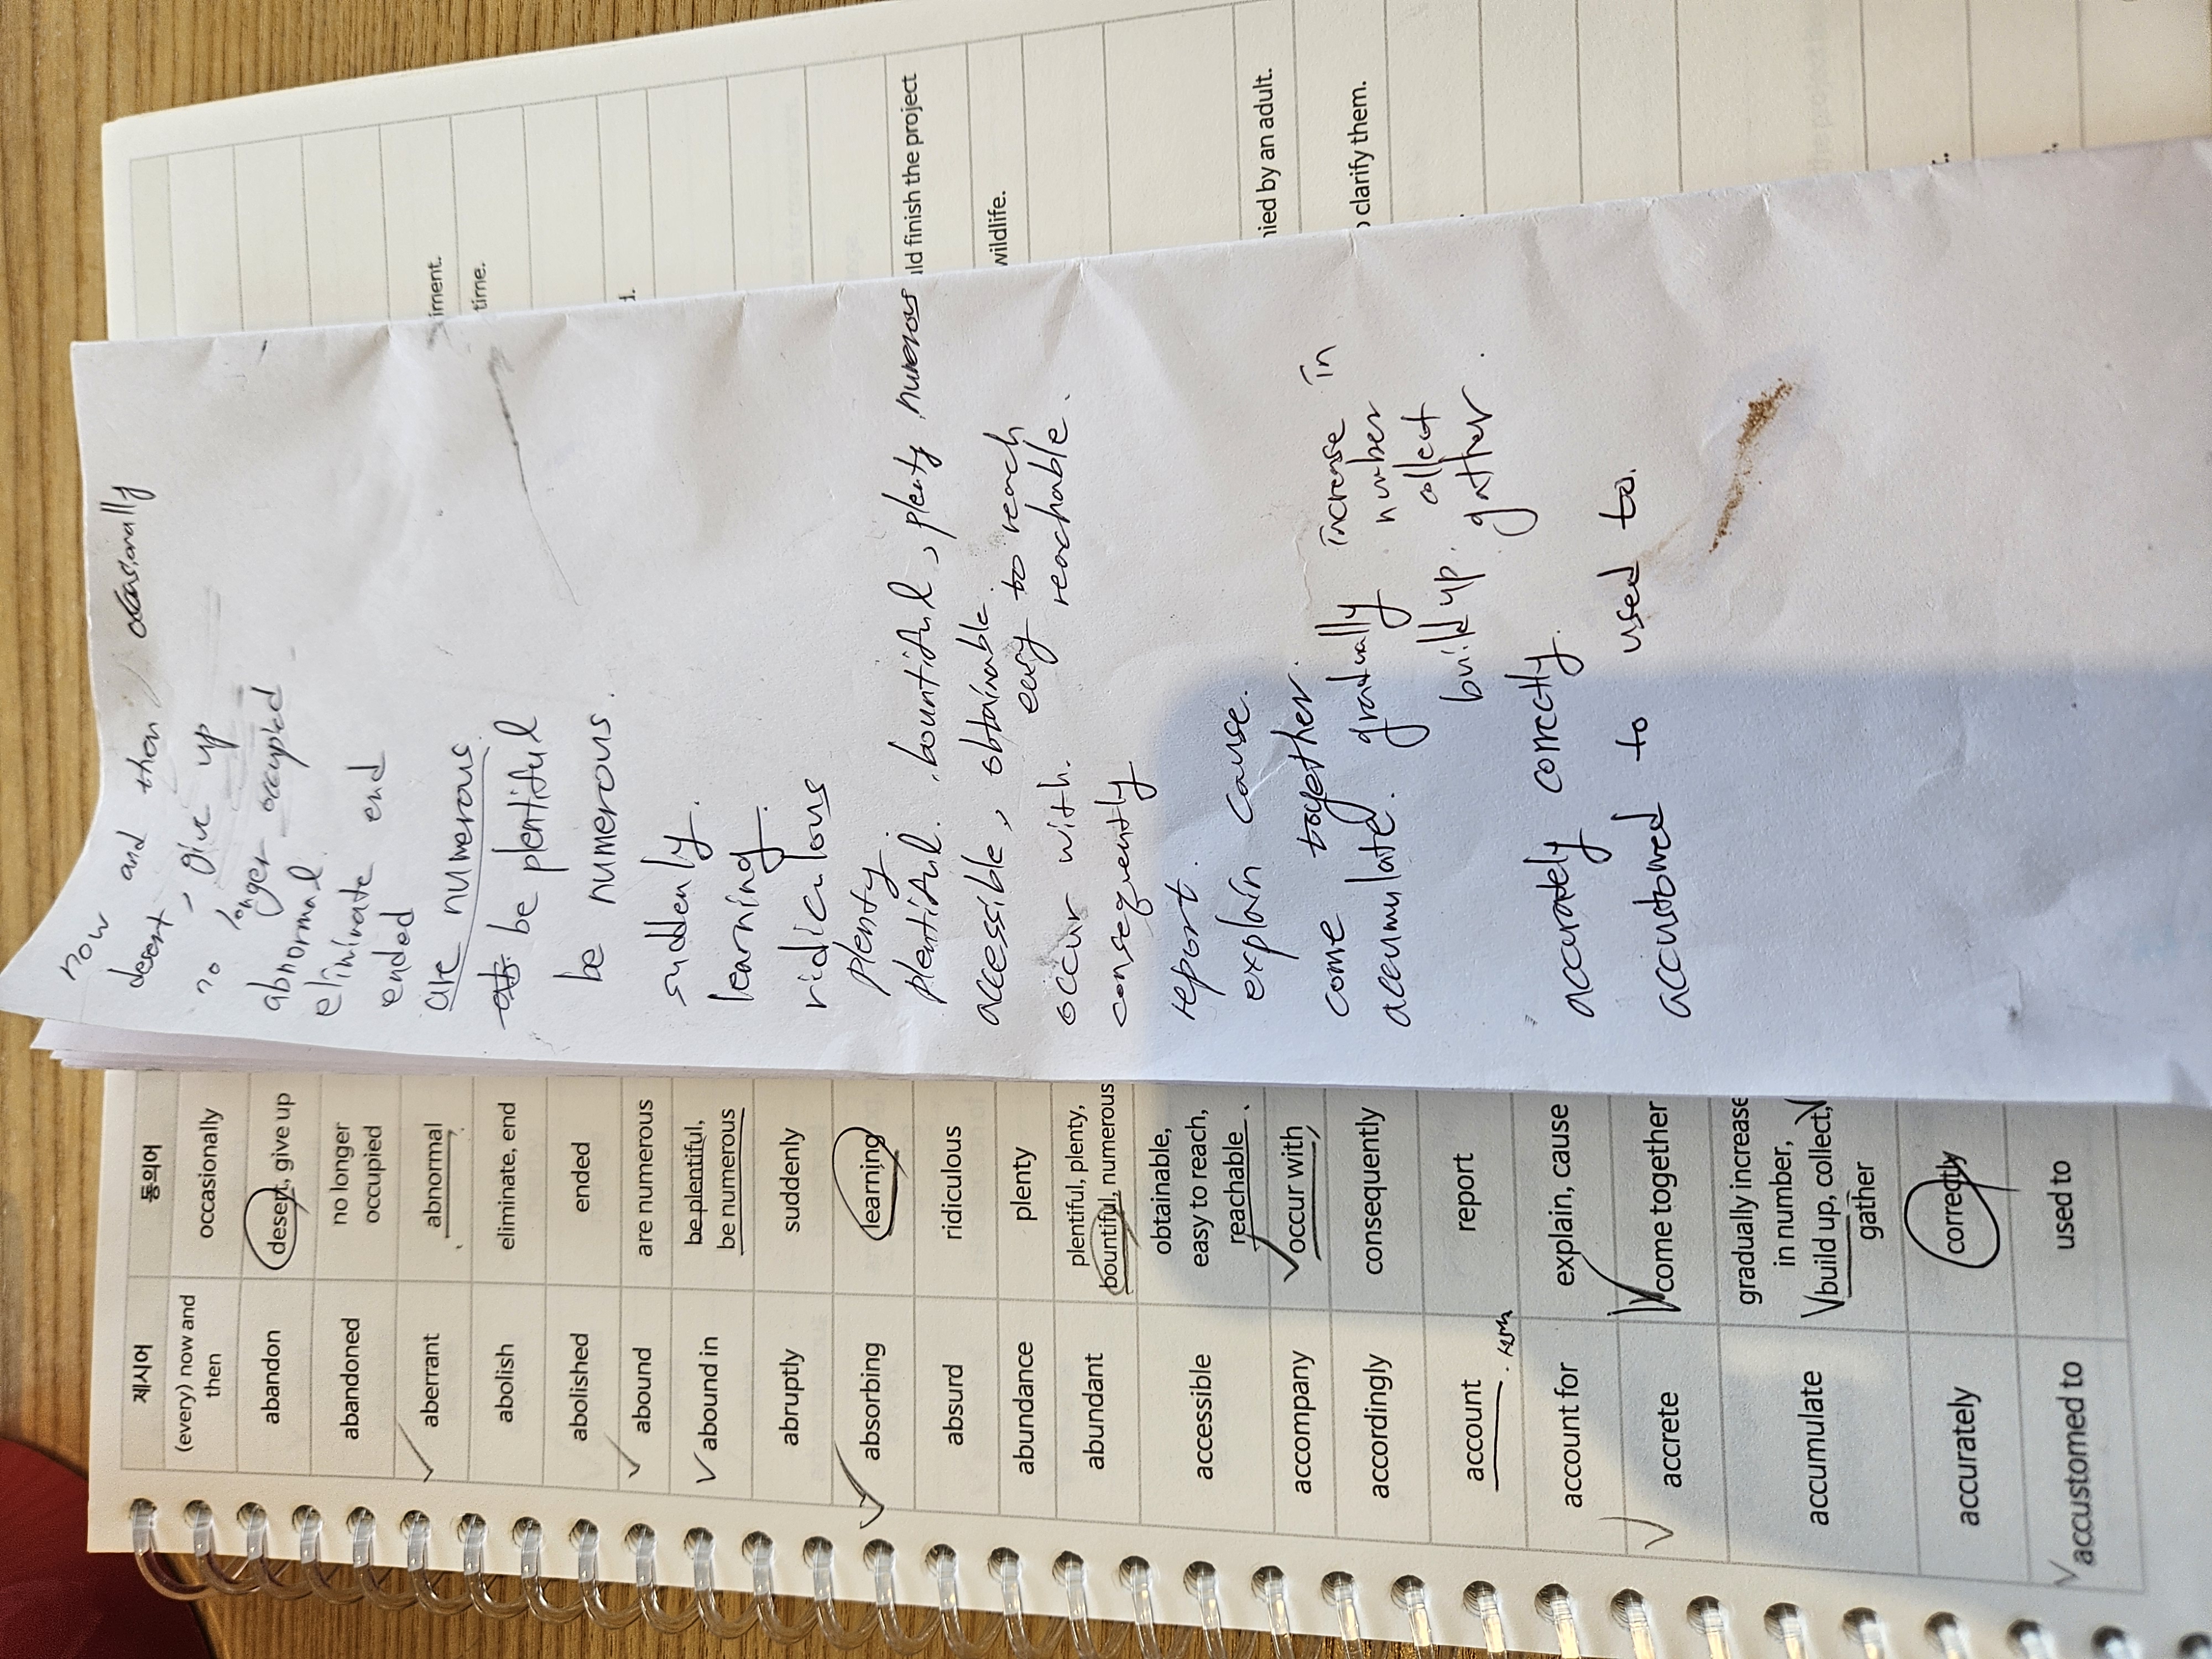 제시어 동의어
(every) now and
then
occasionally
abandon desert, give up
abandoned no longer
occupied
aberrant abnormal
abolish eliminate, end
abolished ended
abound are numerous
abound in be plentiful,
be numerous
abruptly suddenly
absorbing learning
absurd ridiculous
abundance plenty
abundant plentiful, plenty,
bountiful, numerous
accessible obtainable,
easy to reach,
reachable
accompany occur with
accordingly consequently
account report
account for explain, cause
accrete come together
accumulate gradually increase
in number,
build up, collect,
gather
accurately correctly
accustomed to used to
now and then / occasionally
desert, give up
no longer occupied
abnormal
eliminate end
ended
are numerous
be plentiful
be numerous.
suddenly.
learning.
ridiculous
plenty
plentiful. bountiful, plenty, numerous
accessible, obtainable.
easy to reach
reachable.
occur with.
consequently
report.
explain cause.
come together.
accumulate. gradually increase in
number
build up. collect
gather.
accurately correctly.
accustomed to used to.
iment.
time.
d.
ld finish the project
wildlife.
nied by an adult.
o clarify them.